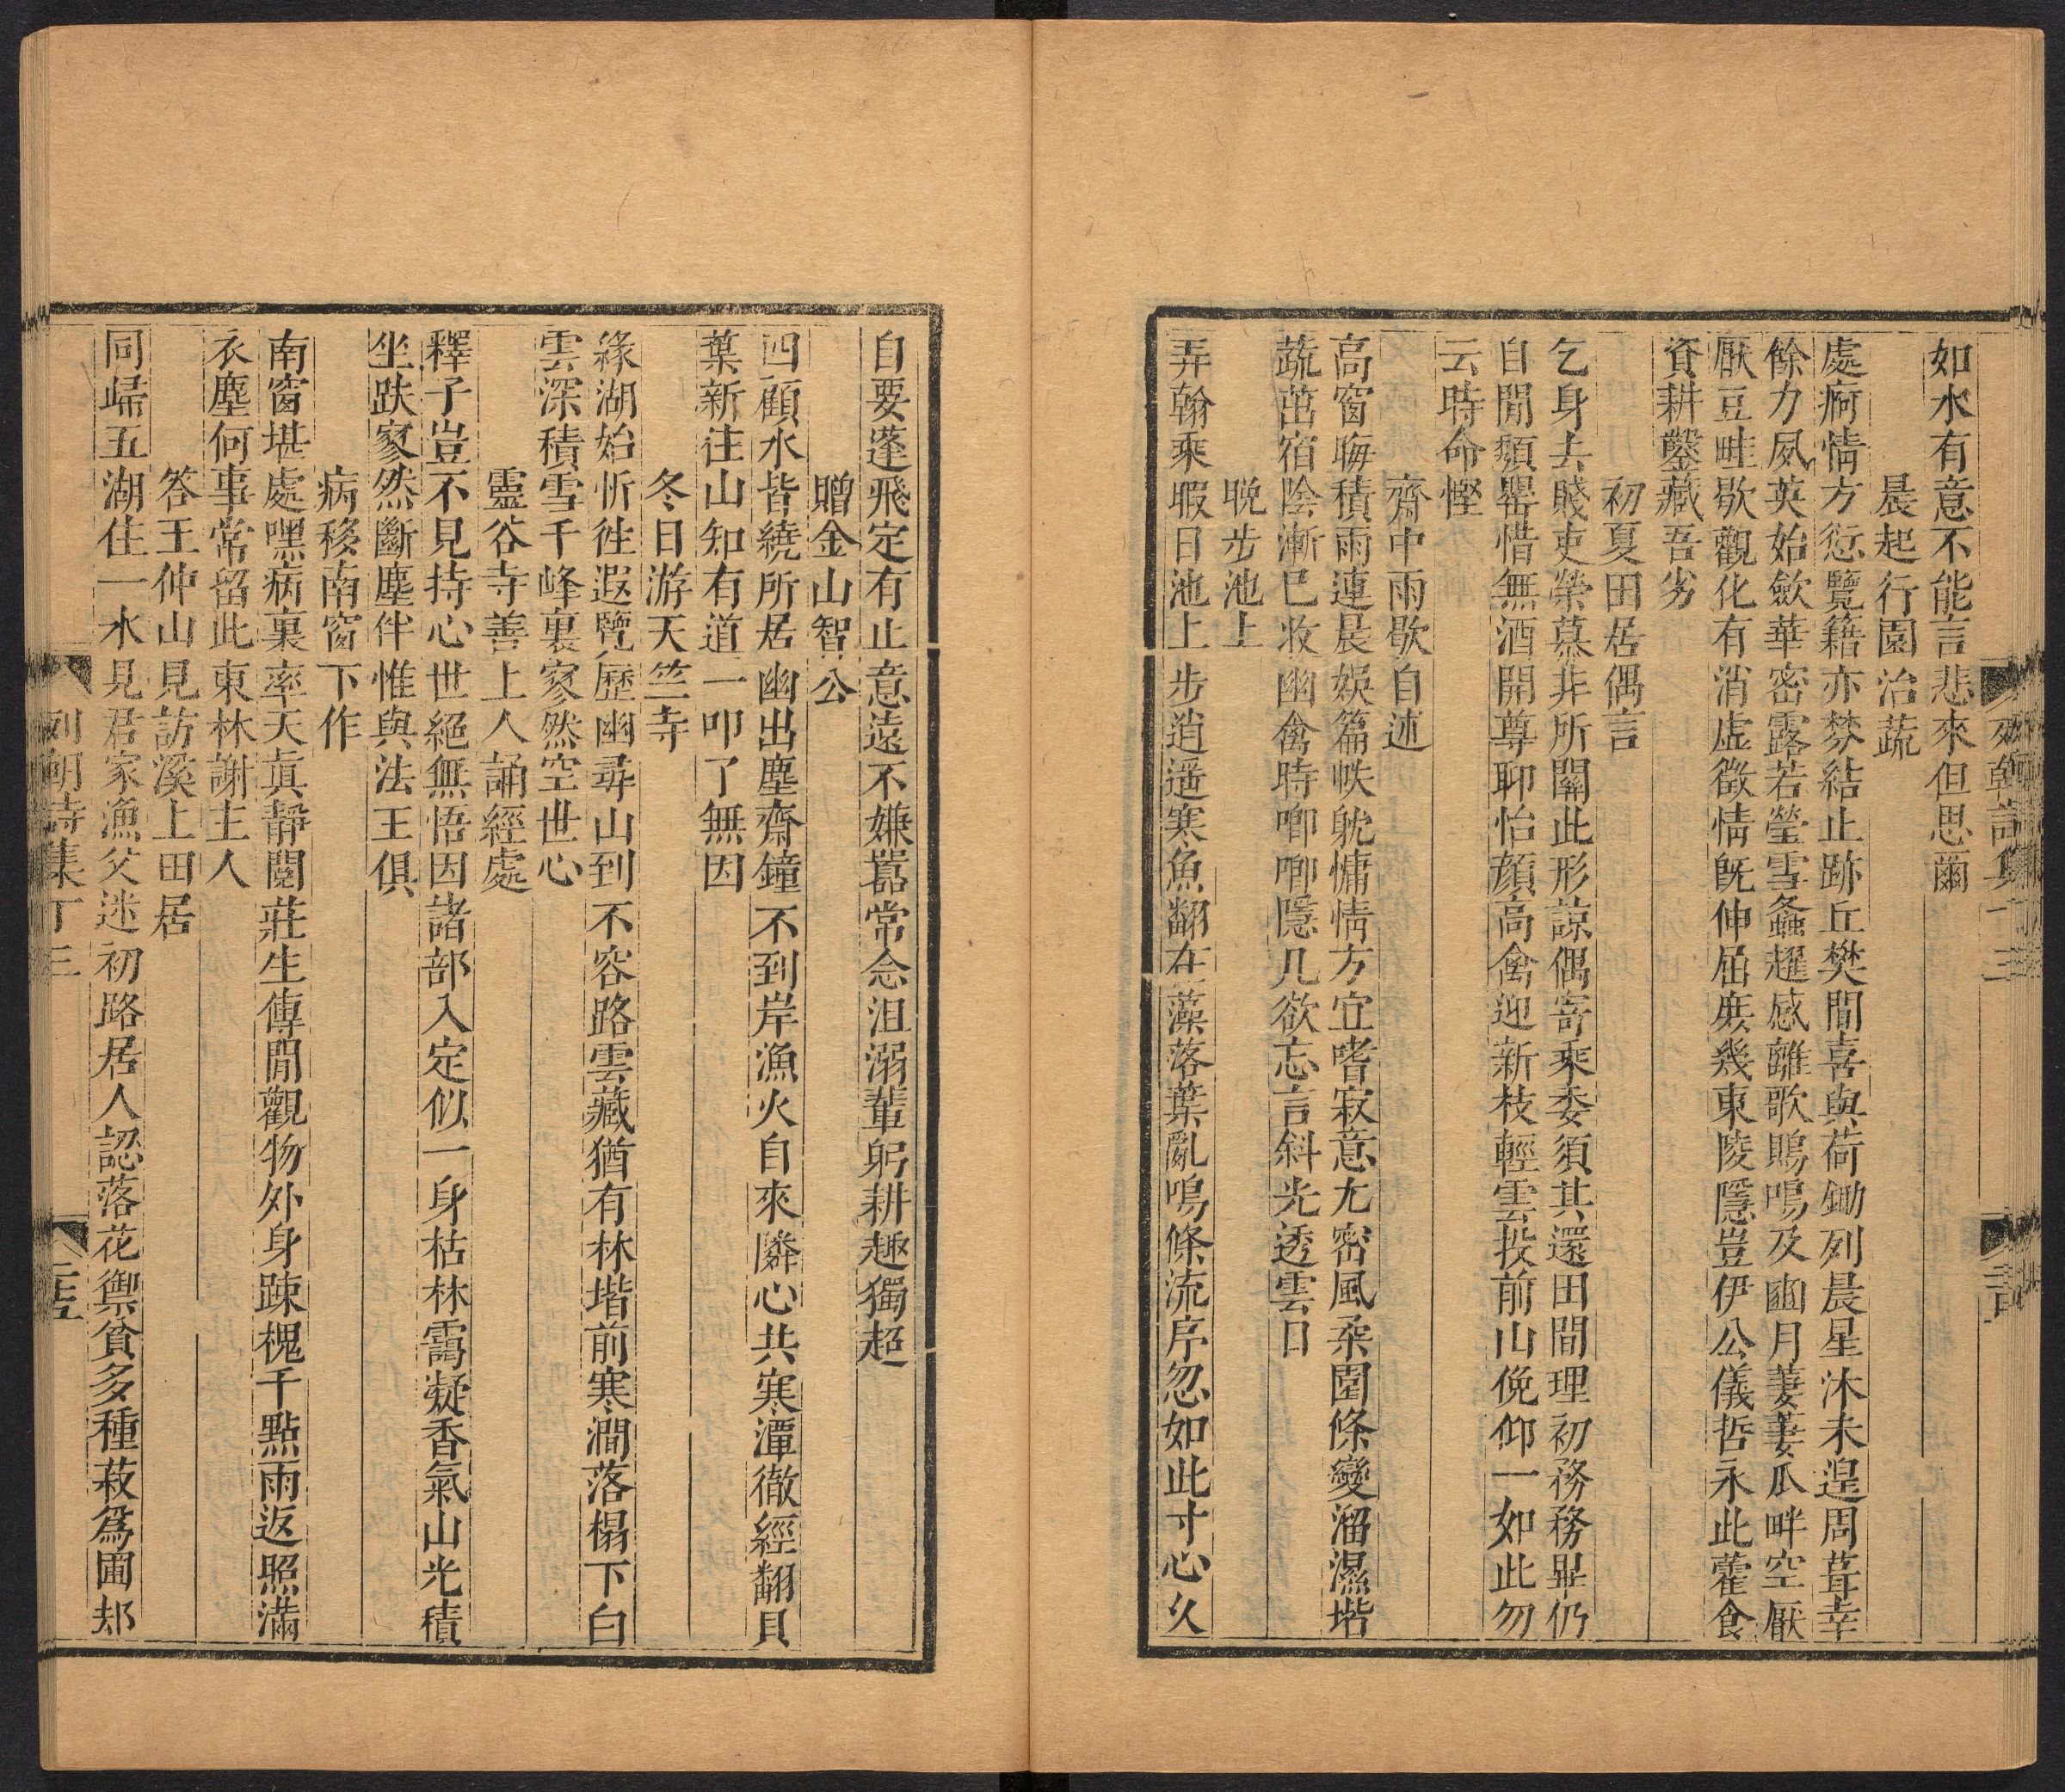 如水有意不能言悲來但思爾
晨起行園治蔬
處痾情方愆覽籍亦棼結止跡丘樊間喜與荷鋤列晨星沐未遑周葺幸
餘力夙英始斂華密露若瑩雪螽趯感離歌鵙鳴及豳月萋萋瓜畔空厭
厭豆畦歇觀化有消虛徵情旣伸屈庶幾東陵隱豈伊公儀哲永此藿食
資耕鑿藏吾劣
初夏田居偶言
乞身去賤吏榮慕非所關此形諒偶寄乘委須其還田間理初務務畢仍
自閒頻罍惜無酒開尊聊怡顏高禽迎新枝輕雲投前山俛仰一如此勿
云時命慳
齋中雨歇自述
高窗晦積雨連晨娛篇帙躭慵情方宜嗜寂意尤密風朶園條變溜濕堦
蔬茁宿陰漸已收幽禽時喞喞隱几欲忘言斜光透雲日
晚步池上
弄翰乘暇日池上步逍遥寒魚翻在藻落葉亂鳴條流序忽如此寸心久
自要蓬飛定有止意遠不嫌囂常念沮溺輩躬耕趣獨超
贈金山智公
四顧水皆繞所居幽出塵齋鐘不到岸漁火自來隣心共寒潭徹經翻貝
葉新注山知有道一叩了無因
冬日游天竺寺
緣湖始忻往遐覽歷幽尋山到不容路雲藏猶有林堦前寒澗落榻下白
雲深積雪千峰裏寥然空世心
靈谷寺善上人誦經處
釋子豈不見持心世絕無悟因諸部入定似一身枯林靄凝香氣山光積
坐趺寥然斷塵伴惟與法王俱
病移南窗下作
南窗堪處嘿病裏率天眞靜閱莊生傳閒觀物外身踈槐千點雨返照滿
衣塵何事常留此東林謝主人
答王仲山見訪溪上田居
同歸五湖住一水見君家漁父迷初路居人認落花禦貧多種菽爲圃却
列朝詩集丁三